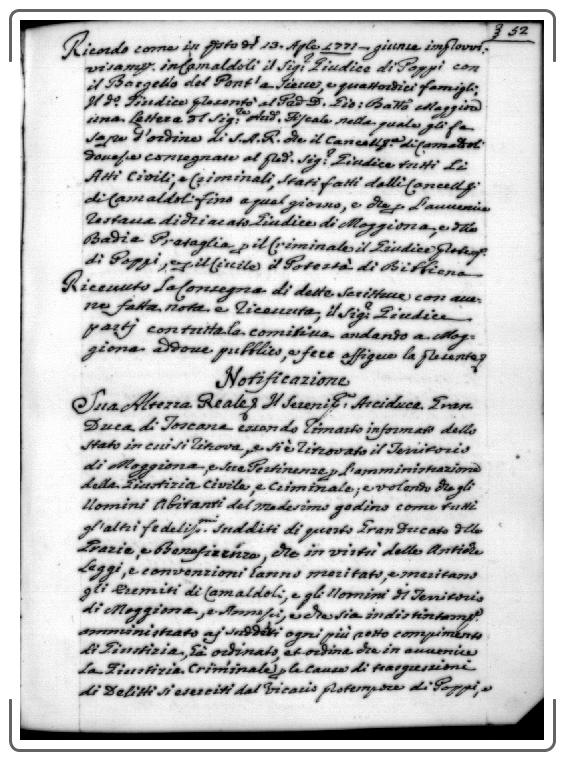 52
Ricordo come in questo dì 13. Aple 1771 - giunse improvvi-
visamte. in Camaldoli il Sigr. Giudice di Poppi con
il Bargello del Pont'a Sieve, e quattordici famigli;
Il do. Giudice presentò al Pad. D. Gio: Batta. Maggino
una Lettera del Sigre. Aud. Fiscale nella quale gli fa
sape d'ordine di S.A.R. che il Cancellre. di Camaldoli
dovesse consegnare al pred. Sigr. Giudice tutti Li
Atti Civili, e Criminali, stati fatti dalli Cancellri.
di Camaldoli fino a quel giorno, e che p L'avvenire
restava dichiarato Giudice di Moggiona, e della
Badia Prataglia p il Criminale il Giudice
di Poppi, e p il Civile il Potestà di Bibbiena
Ricevuto La Consegna di dette scritture con aver-
ne fatta nota e ricevuta, il Sigr. Giudice
partj con tutta la comitiva andando a Mog-
giona addove pubblicò, e fece affigere la presente
Notificazione
Sua Altezza Reale Il Serenissmo. Arciduca Gran
Duca di Toscana essendo rimasto informato dello
stato in cui si ritrova, e si è ritrovato il Territorio
di Moggiona, e sue Pertinenze p L'amministrazione
della Giustizia Civile, e Criminale, e volendo che gli
Uomini Abitanti del medesimo godino come tutti
gl'altri fedelissmi. sudditi di questo Gran Ducato delle
Grazie, e Beneficenze, che in virtù delle Antiche
Leggi, e convenzioni hanno meritato, e meritano
gli Eremiti di Camaldoli, e gli Uomini di Territorio
di Moggiona, e Annessi, e che sia indistintamte.
amministrato aj sudditi ogni più retto compimento
di Giustizia, Hà ordinato, et ordina che in avvenire
La Giustizia Criminale p le Cause di trasgressioni
di Delitti si eserciti dal Vicario protempore di Poppi, e